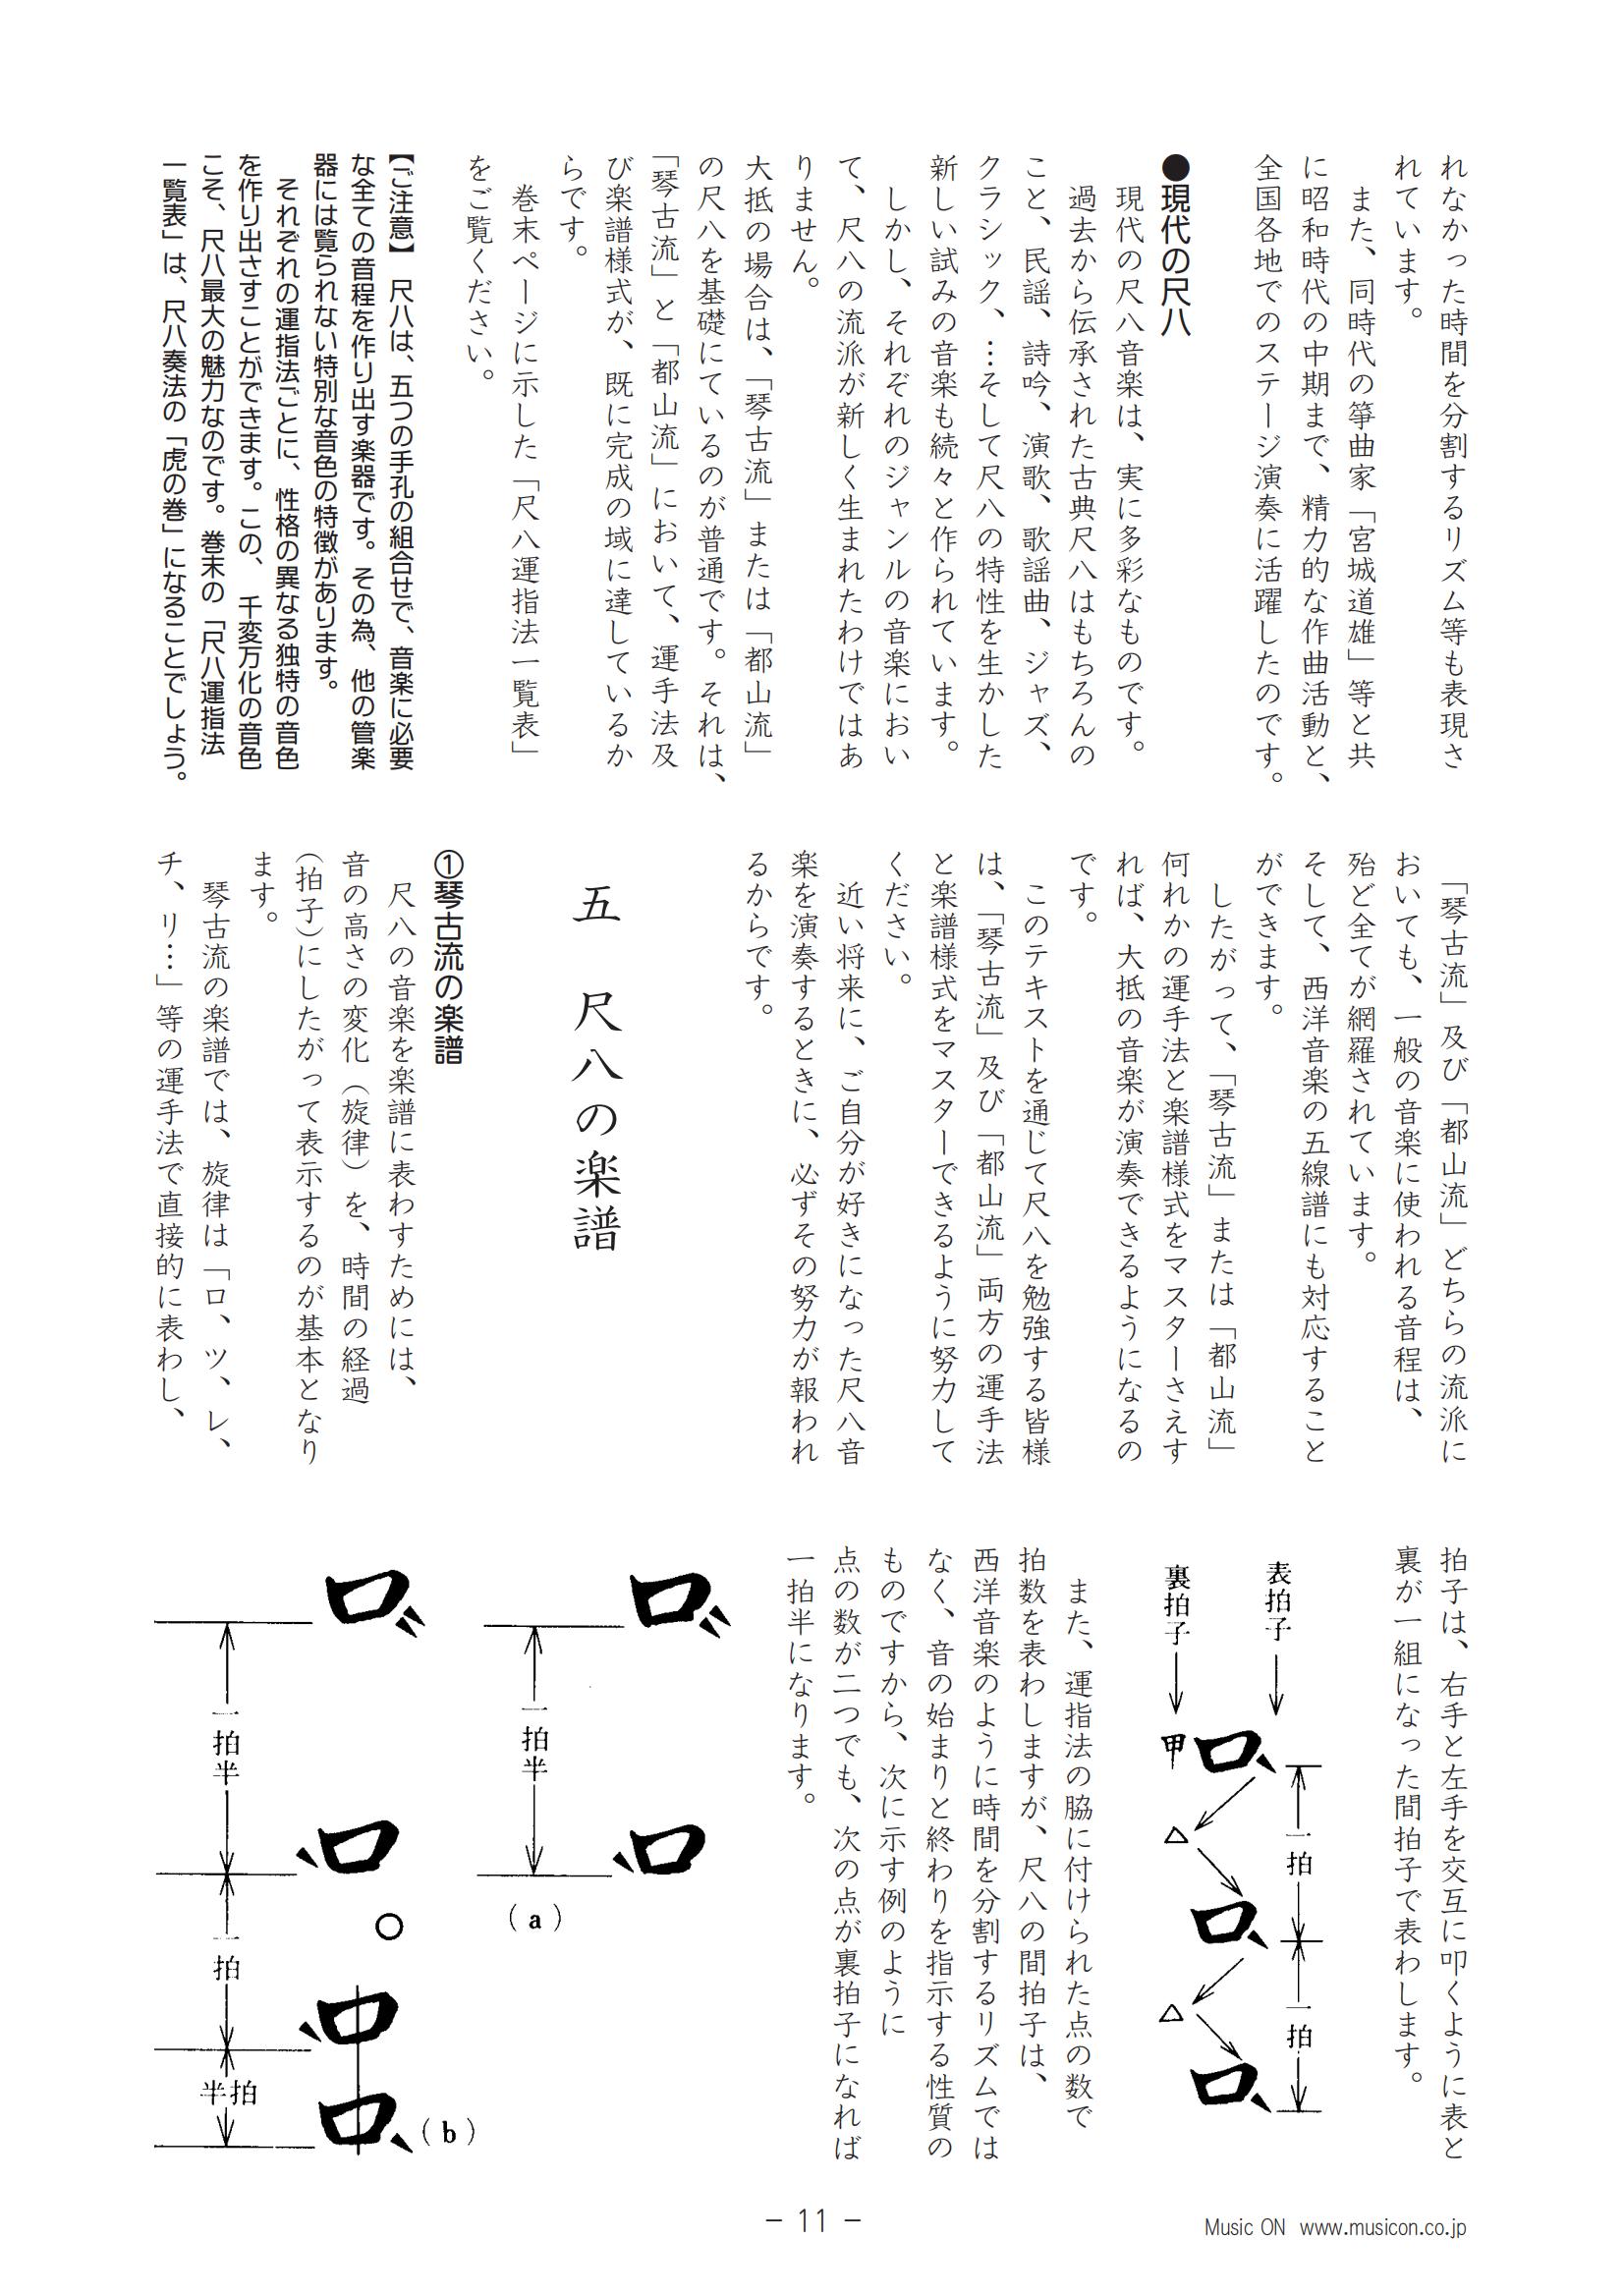 れなかった時間を分割するリズム等も表現さ
れています。
また、同時代の箏曲家「宮城道雄」等と共
に昭和時代の中期まで、精力的な作曲活動と、
全国各地でのステージ演奏に活躍したのです。
●現代の尺八
現代の尺八音楽は、実に多彩なものです。
過去から伝承された古典尺八はもちろんの
こと、民謡、詩吟、演歌、歌謡曲、ジャズ、
クラシック、…そして尺八の特性を生かした
新しい試みの音楽も続々と作られています。
しかし、それぞれのジャンルの音楽におい
て、尺八の流派が新しく生まれたわけではあ
りません。
大抵の場合は、「琴古流」または「都山流」
の尺八を基礎にているのが普通です。それは、
「琴古流」と「都山流」において、運手法及
び楽譜様式が、既に完成の域に達しているか
らです。
巻末ページに示した「尺八運指法一覧表」
をご覧ください。
【ご注意】 尺八は、五つの手孔の組合せで、音楽に必要
な全ての音程を作り出す楽器です。その為、他の管楽
器には覧られない特別な音色の特徴があります。
それぞれの運指法ごとに、性格の異なる独特の音色
を作り出さすことができます。この、千変万化の音色
こそ、尺八最大の魅力なのです。巻末の「尺八運指法
一覧表」は、尺八奏法の「虎の巻」になることでしょう。
「琴古流」及び「都山流」どちらの流派に
おいても、一般の音楽に使われる音程は、
殆ど全てが網羅されています。
そして、西洋音楽の五線譜にも対応すること
ができます。
したがって、「琴古流」または「都山流」
何れかの運手法と楽譜様式をマスターさえす
れば、大抵の音楽が演奏できるようになるの
です。
このテキストを通じて尺八を勉強する皆様
は、「琴古流」及び「都山流」両方の運手法
と楽譜様式をマスターできるように努力して
ください。
近い将来に、ご自分が好きになった尺八音
楽を演奏するときに、必ずその努力が報われ
るからです。
五 尺八の楽譜
①琴古流の楽譜
尺八の音楽を楽譜に表わすためには、
音の高さの変化（旋律）を、時間の経過
（拍子）にしたがって表示するのが基本となり
ます。
琴古流の楽譜では、旋律は「ロ、ツ、レ、
チ、リ…」等の運手法で直接的に表わし、
拍子は、右手と左手を交互に叩くように表と
裏が一組になった間拍子で表わします。
表拍子
裏拍子
甲
ロ
ロ
ロ
一拍
一拍
また、運指法の脇に付けられた点の数で
拍数を表わしますが、尺八の間拍子は、
西洋音楽のように時間を分割するリズムでは
なく、音の始まりと終わりを指示する性質の
ものですから、次に示す例のように
点の数が二つでも、次の点が裏拍子になれば
一拍半になります。
ロ
一拍半
ロ
（a）
ロ
一拍半
ロ
○
一拍
ロ
半拍
ロ
（b）
− 11 −
Music ON www.musicon.co.jp